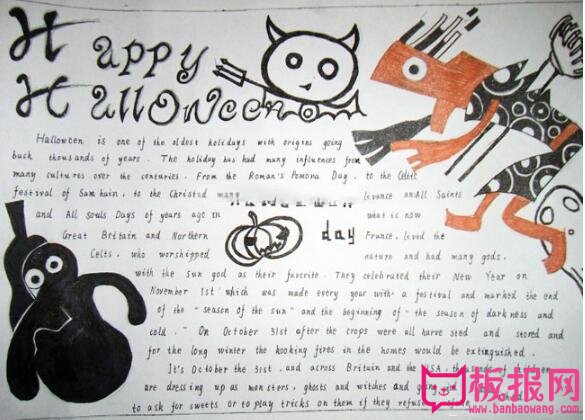 Happy
Halloween
Halloween is one of the oldest holidays with origins going
back thousands of years. The holiday has had many influences from
many cultures over the centuries. From the Roman's Pomona Day, to the Celtic
festival of Samhain, to the Christud many livance an All Saints
and All Souls Days of years ago in what is now
Great Britain and Northern France, lived the
day
Celts, who worshipped nature and had many gods,
with the sun god as their favorite. They celebrated their New Year on
November 1st which was made every year with a festival and marked the end
of the "season of the sun" and the beginning of "the season of darkness and
cold." On October 31st after the crops were all harve sted and stored and
for the long winter the kooking fires in the homes would be extinguished.
It's October the 31st, and across Britain and the USA, thousands of children
are dressing up as monsters, ghosts and witches and going
to ask for sweets or to play tricks on them if they refuse
板报网
www.banbaowang.com